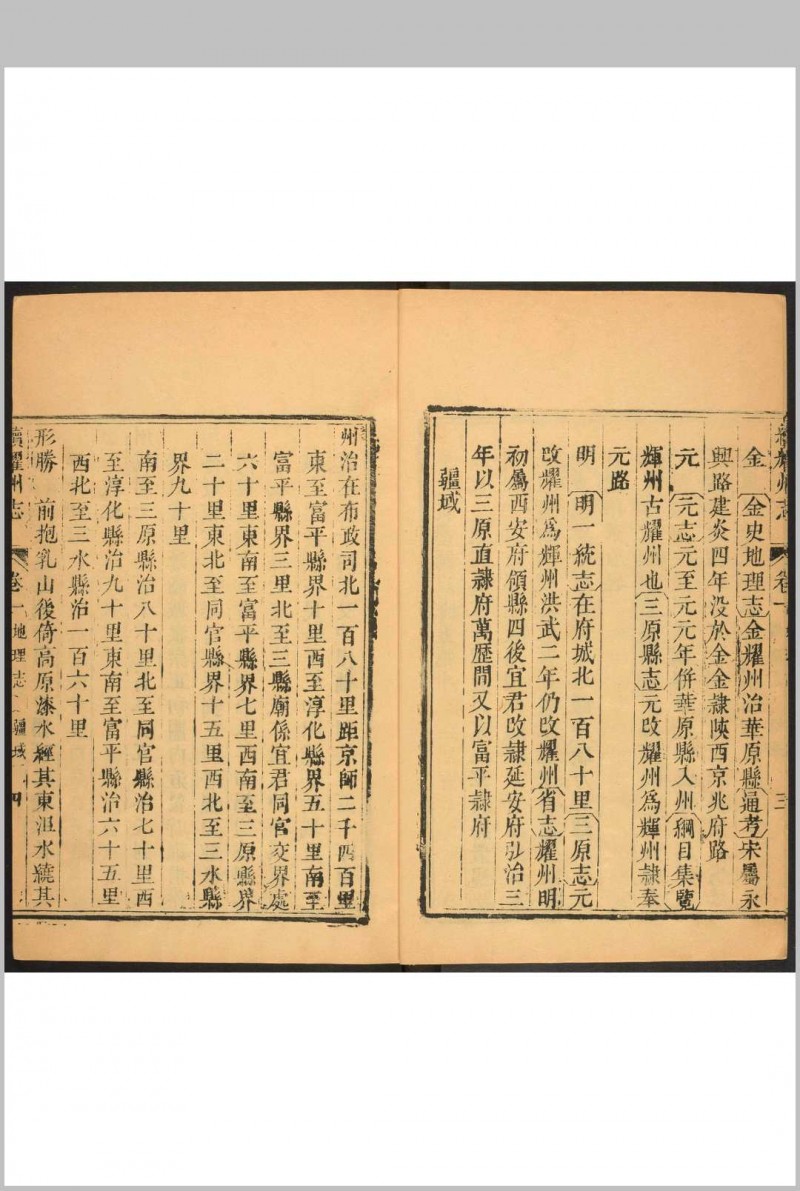 續耀州志 卷一 三
金 金史地理志金耀州治華原縣通考宋屬永
興路建炎四年没於金金隸陝西京兆府路
元 元志元至元元年併華原縣入州綱目集覽
輝州古耀州也三原縣志元改耀州爲輝州隸奉
元路
明 明一統志在府城北一百八十里三原志元
改耀州爲輝州洪武二年仍改耀州省志耀州明
初屬西安府領縣四後宜君改隸延安府弘治三
年以三原直隸府萬歷間又以富平隸府
疆域
州治在布政司北一百八十里距京師二千四百里
東至富平縣界十里西至淳化縣界五十里南至
富平縣界三里北至三縣廟係宜君同官交界處
六十里東南至富平縣界七里西南至三原縣界
二十里東北至同官縣界十五里西北至三水縣
界九十里
南至三原縣治八十里北至同官縣治七十里西
至淳化縣治九十里東南至富平縣治六十五里
西北至三水縣治一百六十里
形勝 前抱乳山後倚高原漆水經其東沮水繞其
續耀州志 卷一 地理志 疆域 四